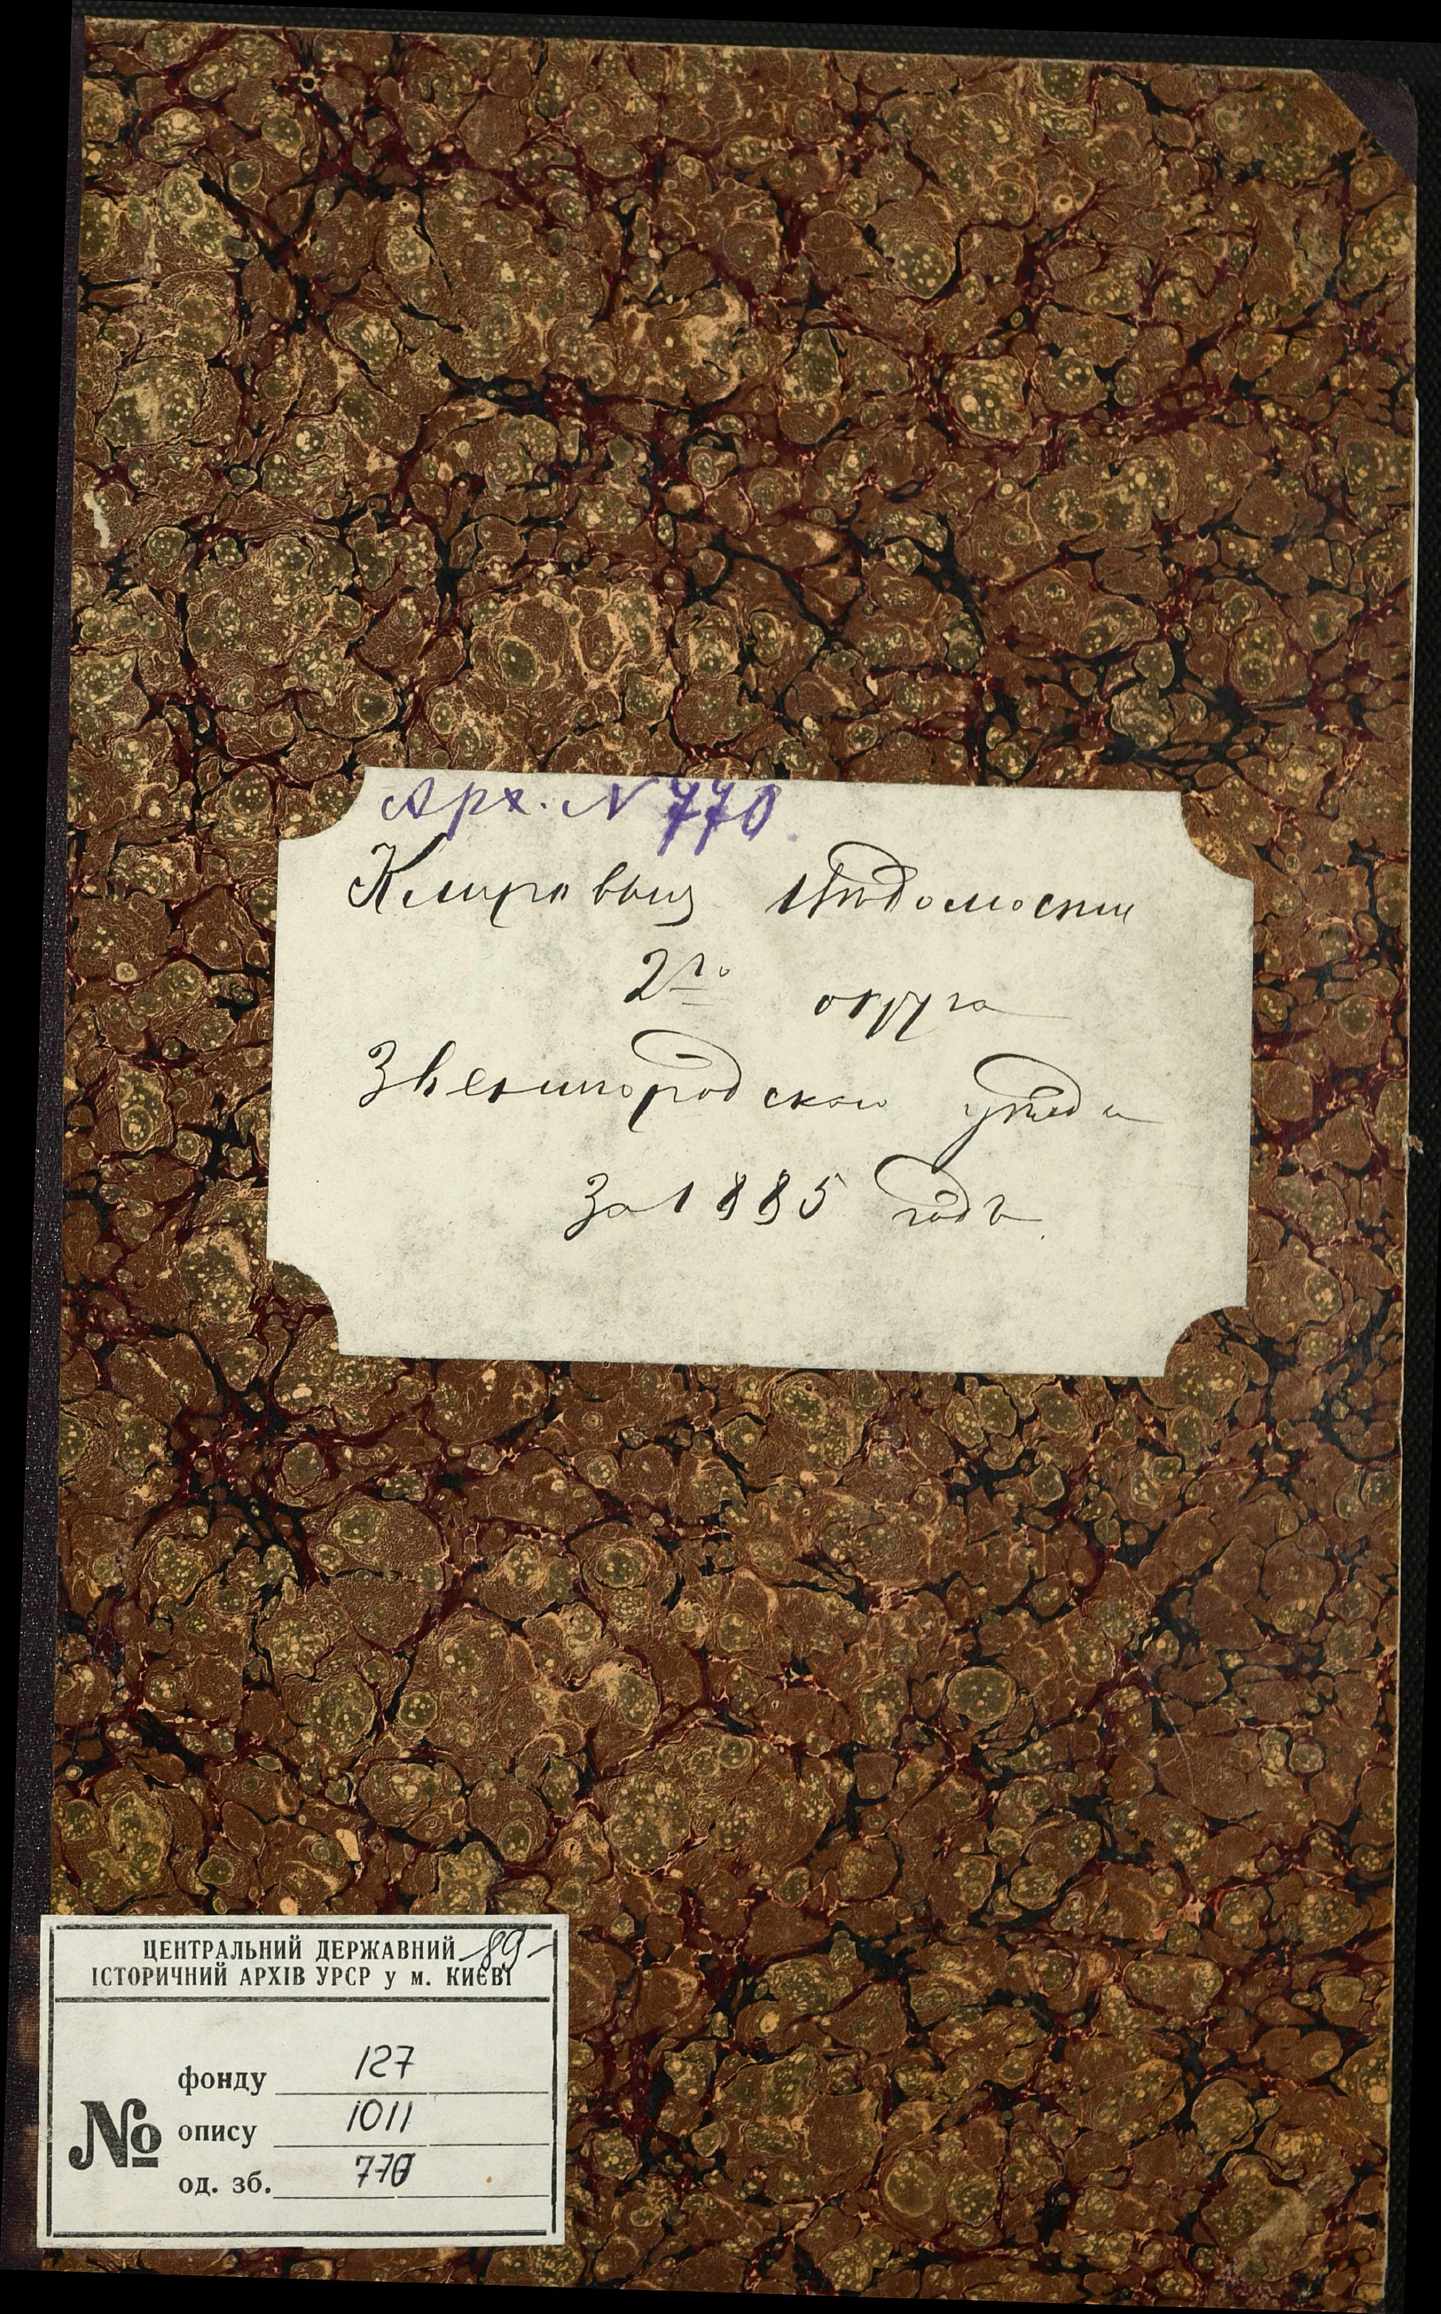 Арх. N 770
Клировыя Вѣдомости
2го округа
Звенигородскаго уѣзда
За 1885 годъ
ЦЕНТРАЛЬНИЙ ДЕРЖАВНИЙ -89-
ІСТОРИЧНИЙ АРХІВ УРСР у м. КИЄВІ
№
фонду 127
опису 1011
од. зб. 770